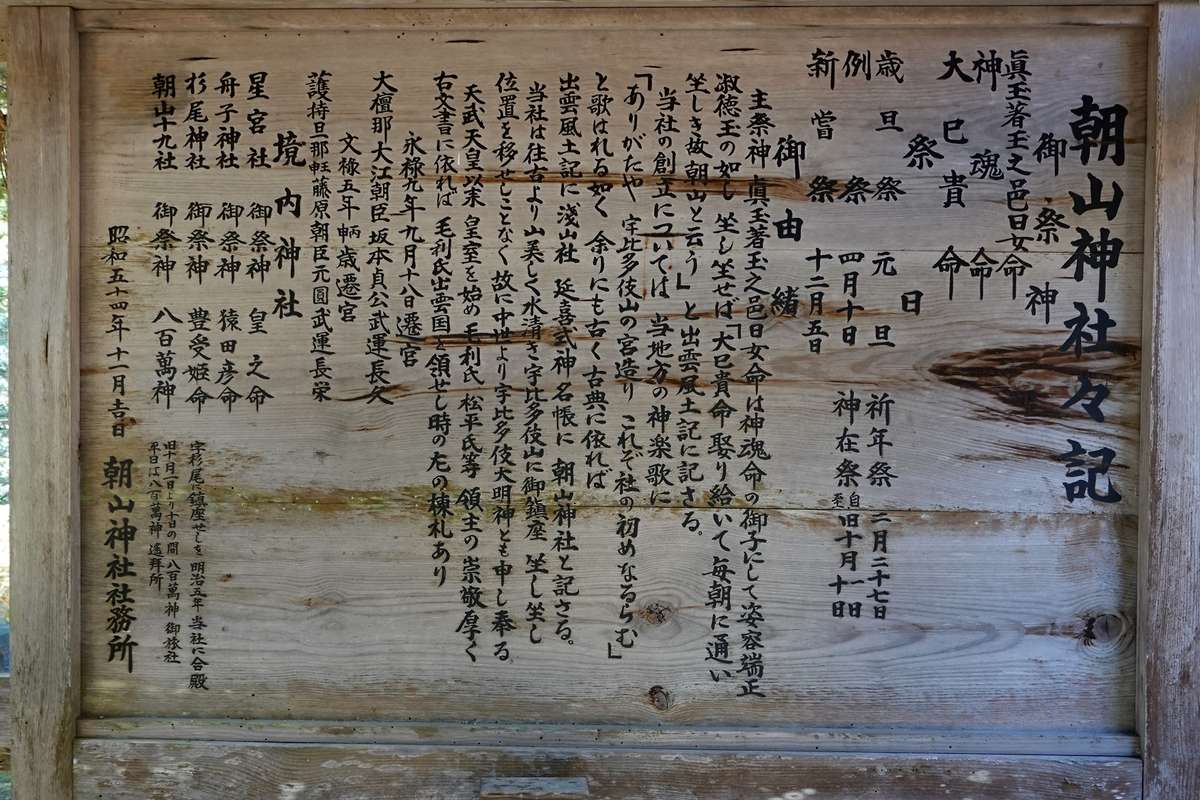 朝山神社々記
御祭神
眞玉著玉之邑日女命
神魂命
大巳貴命
祭日
歳旦祭 元旦 祈年祭 二月二十七日
例祭 四月十日 神在祭 自旧十月一日 至十日
新嘗祭 十二月五日
御由緒
主祭神 眞玉著玉之邑日女命は神魂命の御子にして姿容端正
淑徳玉の如し 坐し坐せば「大巳貴命娶り給いて毎朝に通い
坐しき故 朝山と云う」と出雲風土記に記さる。
当社の創立については 当地方の神楽歌に
「ありがたや 宇比多伎山の宮造り これぞ社の初めなるらむ」
と歌はれる如く 余りにも古く古典に依れば
出雲風土記に浅山社 延喜式神名帳に 朝山神社と記さる。
当社は往古より山美しく水清き宇比多伎山に御鎮座 坐し坐し
位置を移せしことなく故に中世より宇比多伎大明神とも申し奉る
天武天皇以来 皇室を始め 毛利氏 松平氏等 領主の崇敬厚く
右文書に依れば 毛利氏出雲国を領せし時の左の棟札あり
永禄九年九月十八日遷宮
大檀那大江朝臣坂本貞公武運長久
文禄五年丙申歳遷宮
護持旦那 藤原朝臣元圓武運長栄
境内神社
星宮社 御祭神 皇之命
舟子神社 御祭神 猿田彦命
杉尾神社 御祭神 豊受姫命 字杉尾に鎮座せしを 明治五年 当社に合殿
朝山十九社 御祭神 八百萬神 旧十月一日より十日の間 八百萬神 御旅社
平日は八百萬神 遙拜所
昭和五十四年十一月吉日 朝山神社社務所